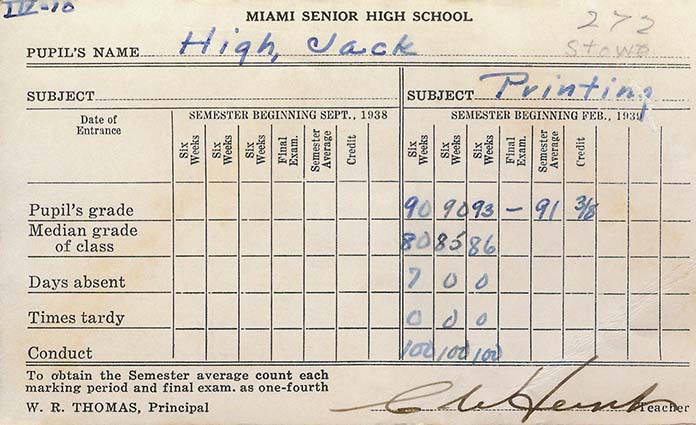 III-10
MIAMI SENIOR HIGH SCHOOL
272
PUPIL'S NAME High, Jack
Stowe
SUBJECT
SUBJECT Printing
Date of Entrance
SEMESTER BEGINNING SEPT., 1938
SEMESTER BEGINNING FEB., 1939
Six Weeks Six Weeks Six Weeks Final Exam. Semester Average Credit Six Weeks Six Weeks Six Weeks Final Exam. Semester Average Credit
Pupil's grade 90 90 93 – 91 3/8
Median grade
of class 80 85 86
Days absent 7 0 0
Times tardy 0 0 0
Conduct 100 100 100
To obtain the Semester average count each
marking period and final exam. as one-fourth
W. R. THOMAS, Principal
Teacher